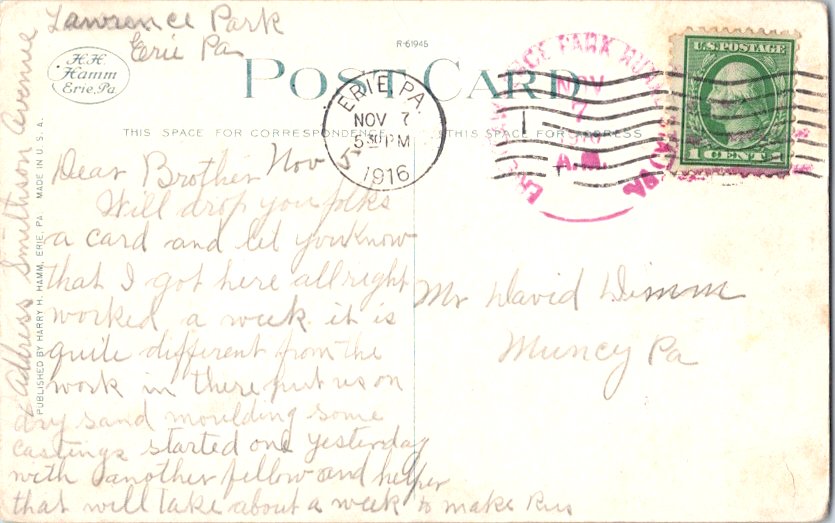 Lawrence Park
Erie Pa
R-61945
H.H.
Hamm
Erie, Pa.
POST CARD
THIS SPACE FOR CORRESPONDENCE
THIS SPACE FOR ADDRESS
ERIE, PA.
NOV 7
5 30 PM
1916
PARK
NOV
7
A.M.
U.S. POSTAGE
1 CENT 1
Dear Brother Nov 5
Will drop you folks
a card and let you know
that I got here allright
worked a week it is
quite different from the
work in there put us on
dry sand moulding some
castings started one yesterday
with another fellow and helper
that will take about a week to make
Address Smithson Avenue
PUBLISHED BY HARRY H. HAMM, ERIE, PA. MADE IN U.S.A.
Mr David Dimm
Muncy Pa